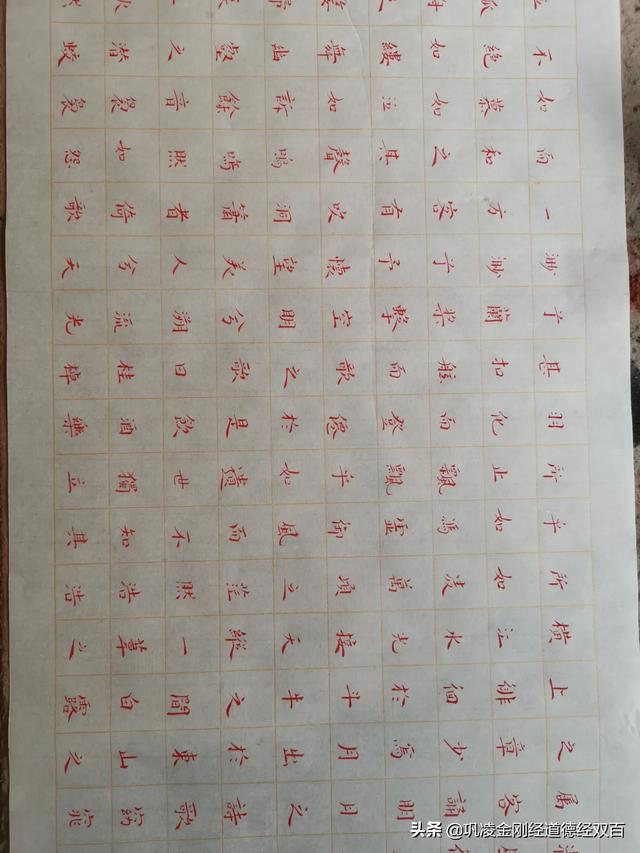 属客誦明月之詩歌窈窕
之章少焉月出於東山之
上徘徊於斗牛之間白露
橫江水光接天縱一葦之
所如淩萬頃之茫然浩浩
乎如馮虛御風而不知其
所止飄飄乎如遺世獨立
羽化而登僊於是飲酒樂
甚扣舷而歌之歌曰桂棹
兮蘭槳擊空明兮溯流光
渺渺兮予懷望美人兮天
一方客有吹洞簫者倚歌
而和之其聲嗚嗚然如怨
如慕如泣如訴餘音裊裊
不絕如縷舞幽壑之潛蛟
头条 @巩凌金刚经道德经双百